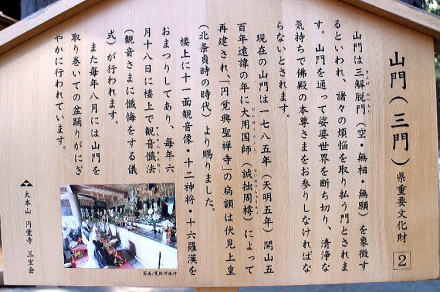 山門(三門) 県重要文化財 2
山門は三解脱門(空・無相・無願)を象徴す
るといわれ、諸々の煩悩を取り払う門とされま
す。山門を通って娑婆世界を断ち切り、清浄な
気持ちで佛殿の本尊さまをお参りしなければな
らないとされます。
現在の山門は一七八五年(天明五年)開山五
百年遠諱の年に大用国師(誠拙周樗)によって
再建され、「円覚興聖禅寺」の扁額は伏見上皇
(北条貞時の時代)より賜りました。
楼上に十一面観音像・十二神将・十六羅漢を
おまつりしてあり、毎年六
月十八日に楼上で観音懺法
(観音さまに懺悔をする儀
式)が行われます。
また毎年八月には山門を
取り巻いての盆踊りがにぎ
やかに行われています。
大本山 円覚寺 三宝会